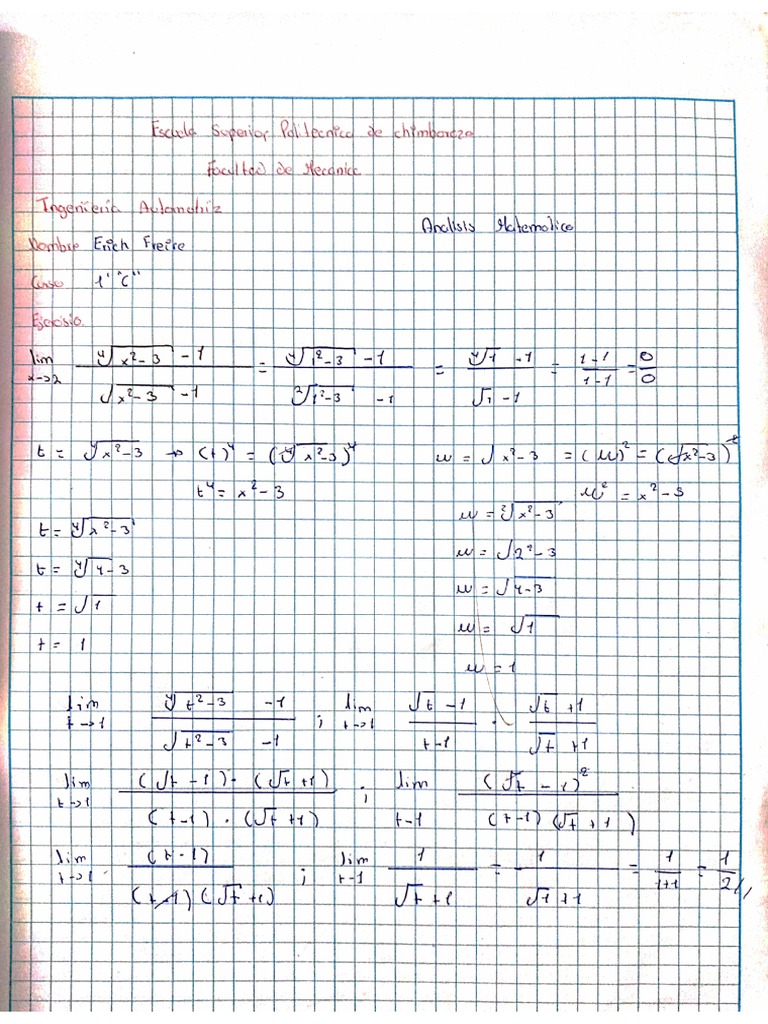 Escuela Superior Politecnica de chimborazo
Facultad de Mecanica
Ingenieria Automotriz
Analisis Matematico
Nombre Erich Freire
Curso 1 "C"
Ejercicio
lim x→2 (∜(x²-3) -1)/(√(x²-3) -1) = (∜(1²-3) -1)/(²√(1²-3) -1) = (∜1 -1)/(√1 -1) = (1-1)/(1-1) = 0/0
t = ∜(x²-3) → (t)⁴ = (∜(x²-3))⁴
t⁴ = x²-3
t = ∜(x²-3)
t = ∜(4-3)
t = √1
t = 1
u = √(x²-3) = (u)² = (√(x²-3))²
u² = x²-3
u = ²√(x²-3)
u = √(2²-3)
u = √(4-3)
u = √1
u = 1
lim t→1 (∜(t²-3) -1)/(√(t²-3) -1) ; lim t→1 (√t -1)/(t-1) · (√t +1)/(√t +1)
lim t→1 ((√t -1)·(√t +1))/((t-1)·(√t +1)) ; lim t-1 (√t -1)²/((t-1)(√t +1))
lim t→1 (t-1)/((t-1)(√t +1)) ; lim t-1 1/(√t +1) = 1/(√1 +1) = 1/(1+1) = 1/2 //